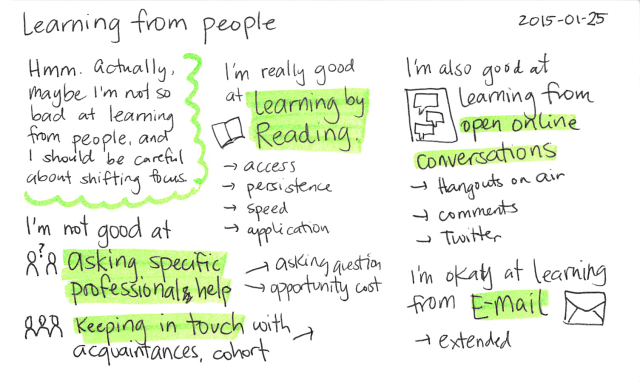 Learning from people
2015-01-25
Hmm. Actually,
maybe I'm not so
bad at learning
from people, and
I should be careful
about shifting focus.
I'm not good at
asking specific
professionals help
→ asking question
→ opportunity cost
Keeping in touch with →
acquaintances, cohort
I'm really good
at Learning by
Reading.
→ access
→ persistence
→ speed
→ application
I'm also good at
learning from
open online
conversations
→ Hangouts on air
→ comments
→ Twitter
I'm okay at learning
from E-mail
→ extended